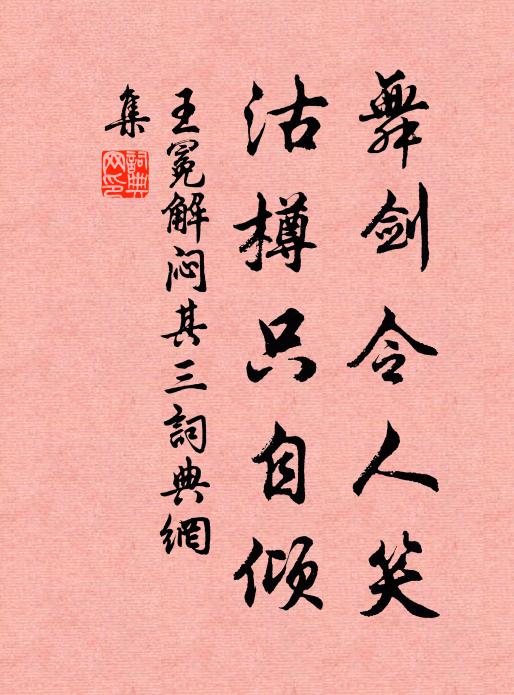 舞剑令人笑
沽樽只自倾
王冕解闷其三詞典網
集
詞典
网印